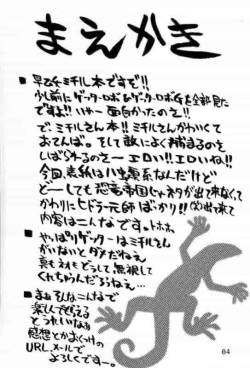 まえかき
■ 早乙女ミチル本ですぞ!!
少し前にゲッターロボ&ゲッターロボGを全部見た
ですよ!! いやー面白かったのさ!!
で、ミチルさん本!! ミチルさんかわいくて
おてんば。そして敵によく捕まるのさ
しばられるのさー エロい!! エロいね!!
今回、表紙はハ虫類系なんだけど
どーしても恐竜帝国じゃネタが出て来なくて
かわりにヒドラー元帥ばっかり!!(笑)出て来て
内容はこんなです。トホホ、
■ やっぱりゲッターはミチルさん
がいないとダメだねぇ
くれちゃんだろうねぇ…
■ まぁそんなこんなで
楽しんでもらえる
とうれいなぁ
感想とかおくつけの
URL、メールで
よろしくですー。
64